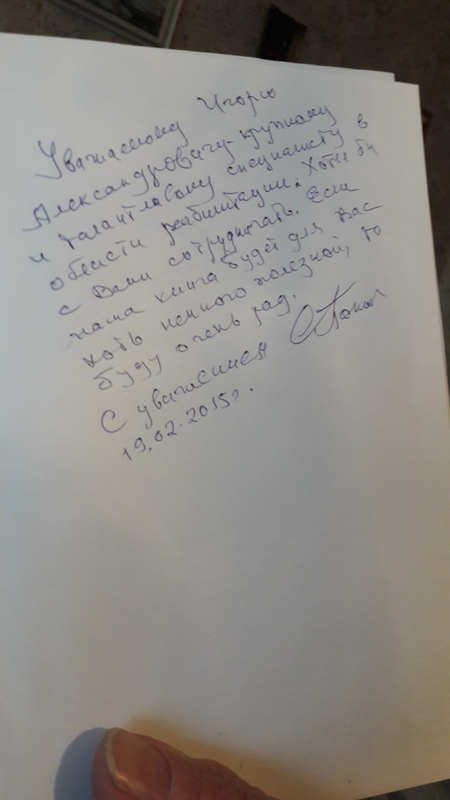 Уважаемому Игорю
Александровичу - крупному
и талантливому специалисту в
области реабилитации. Хотел бы
с Вами сотрудничать. Если
наша книга будет для Вас
хоть немного полезной, то
буду очень рад.
С уважением
19.02.2015г.